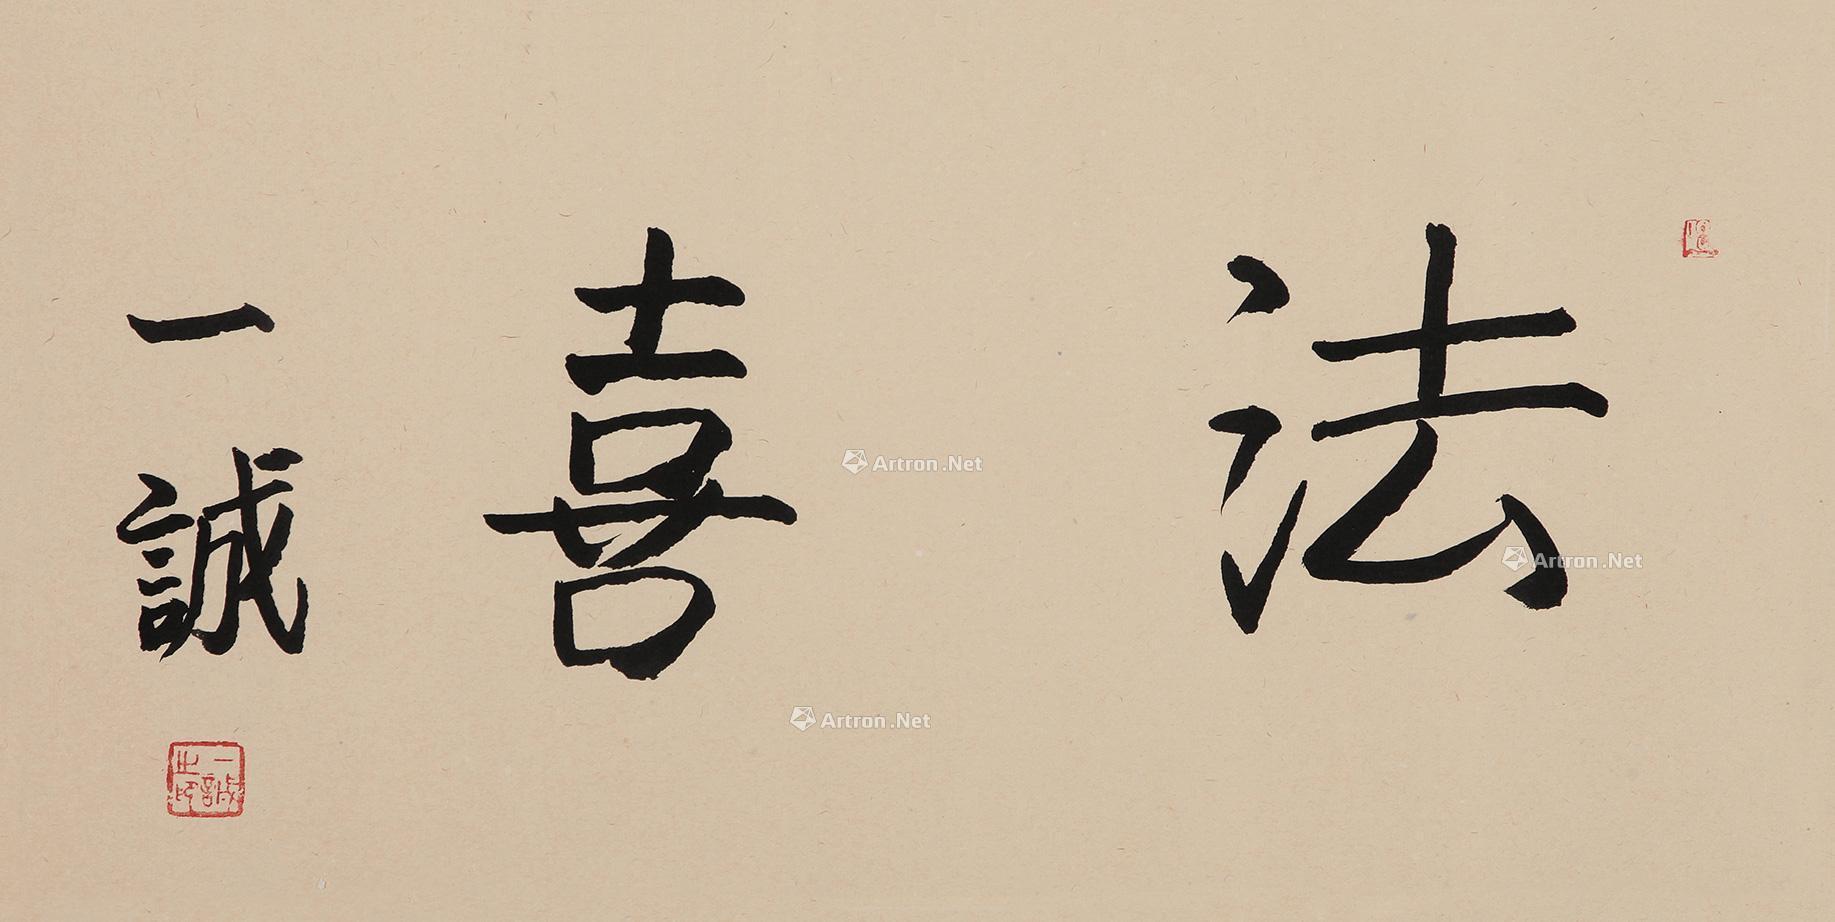 法喜
一誠
一誠之印
Artron.Net
Artron.Net
Artron.Net